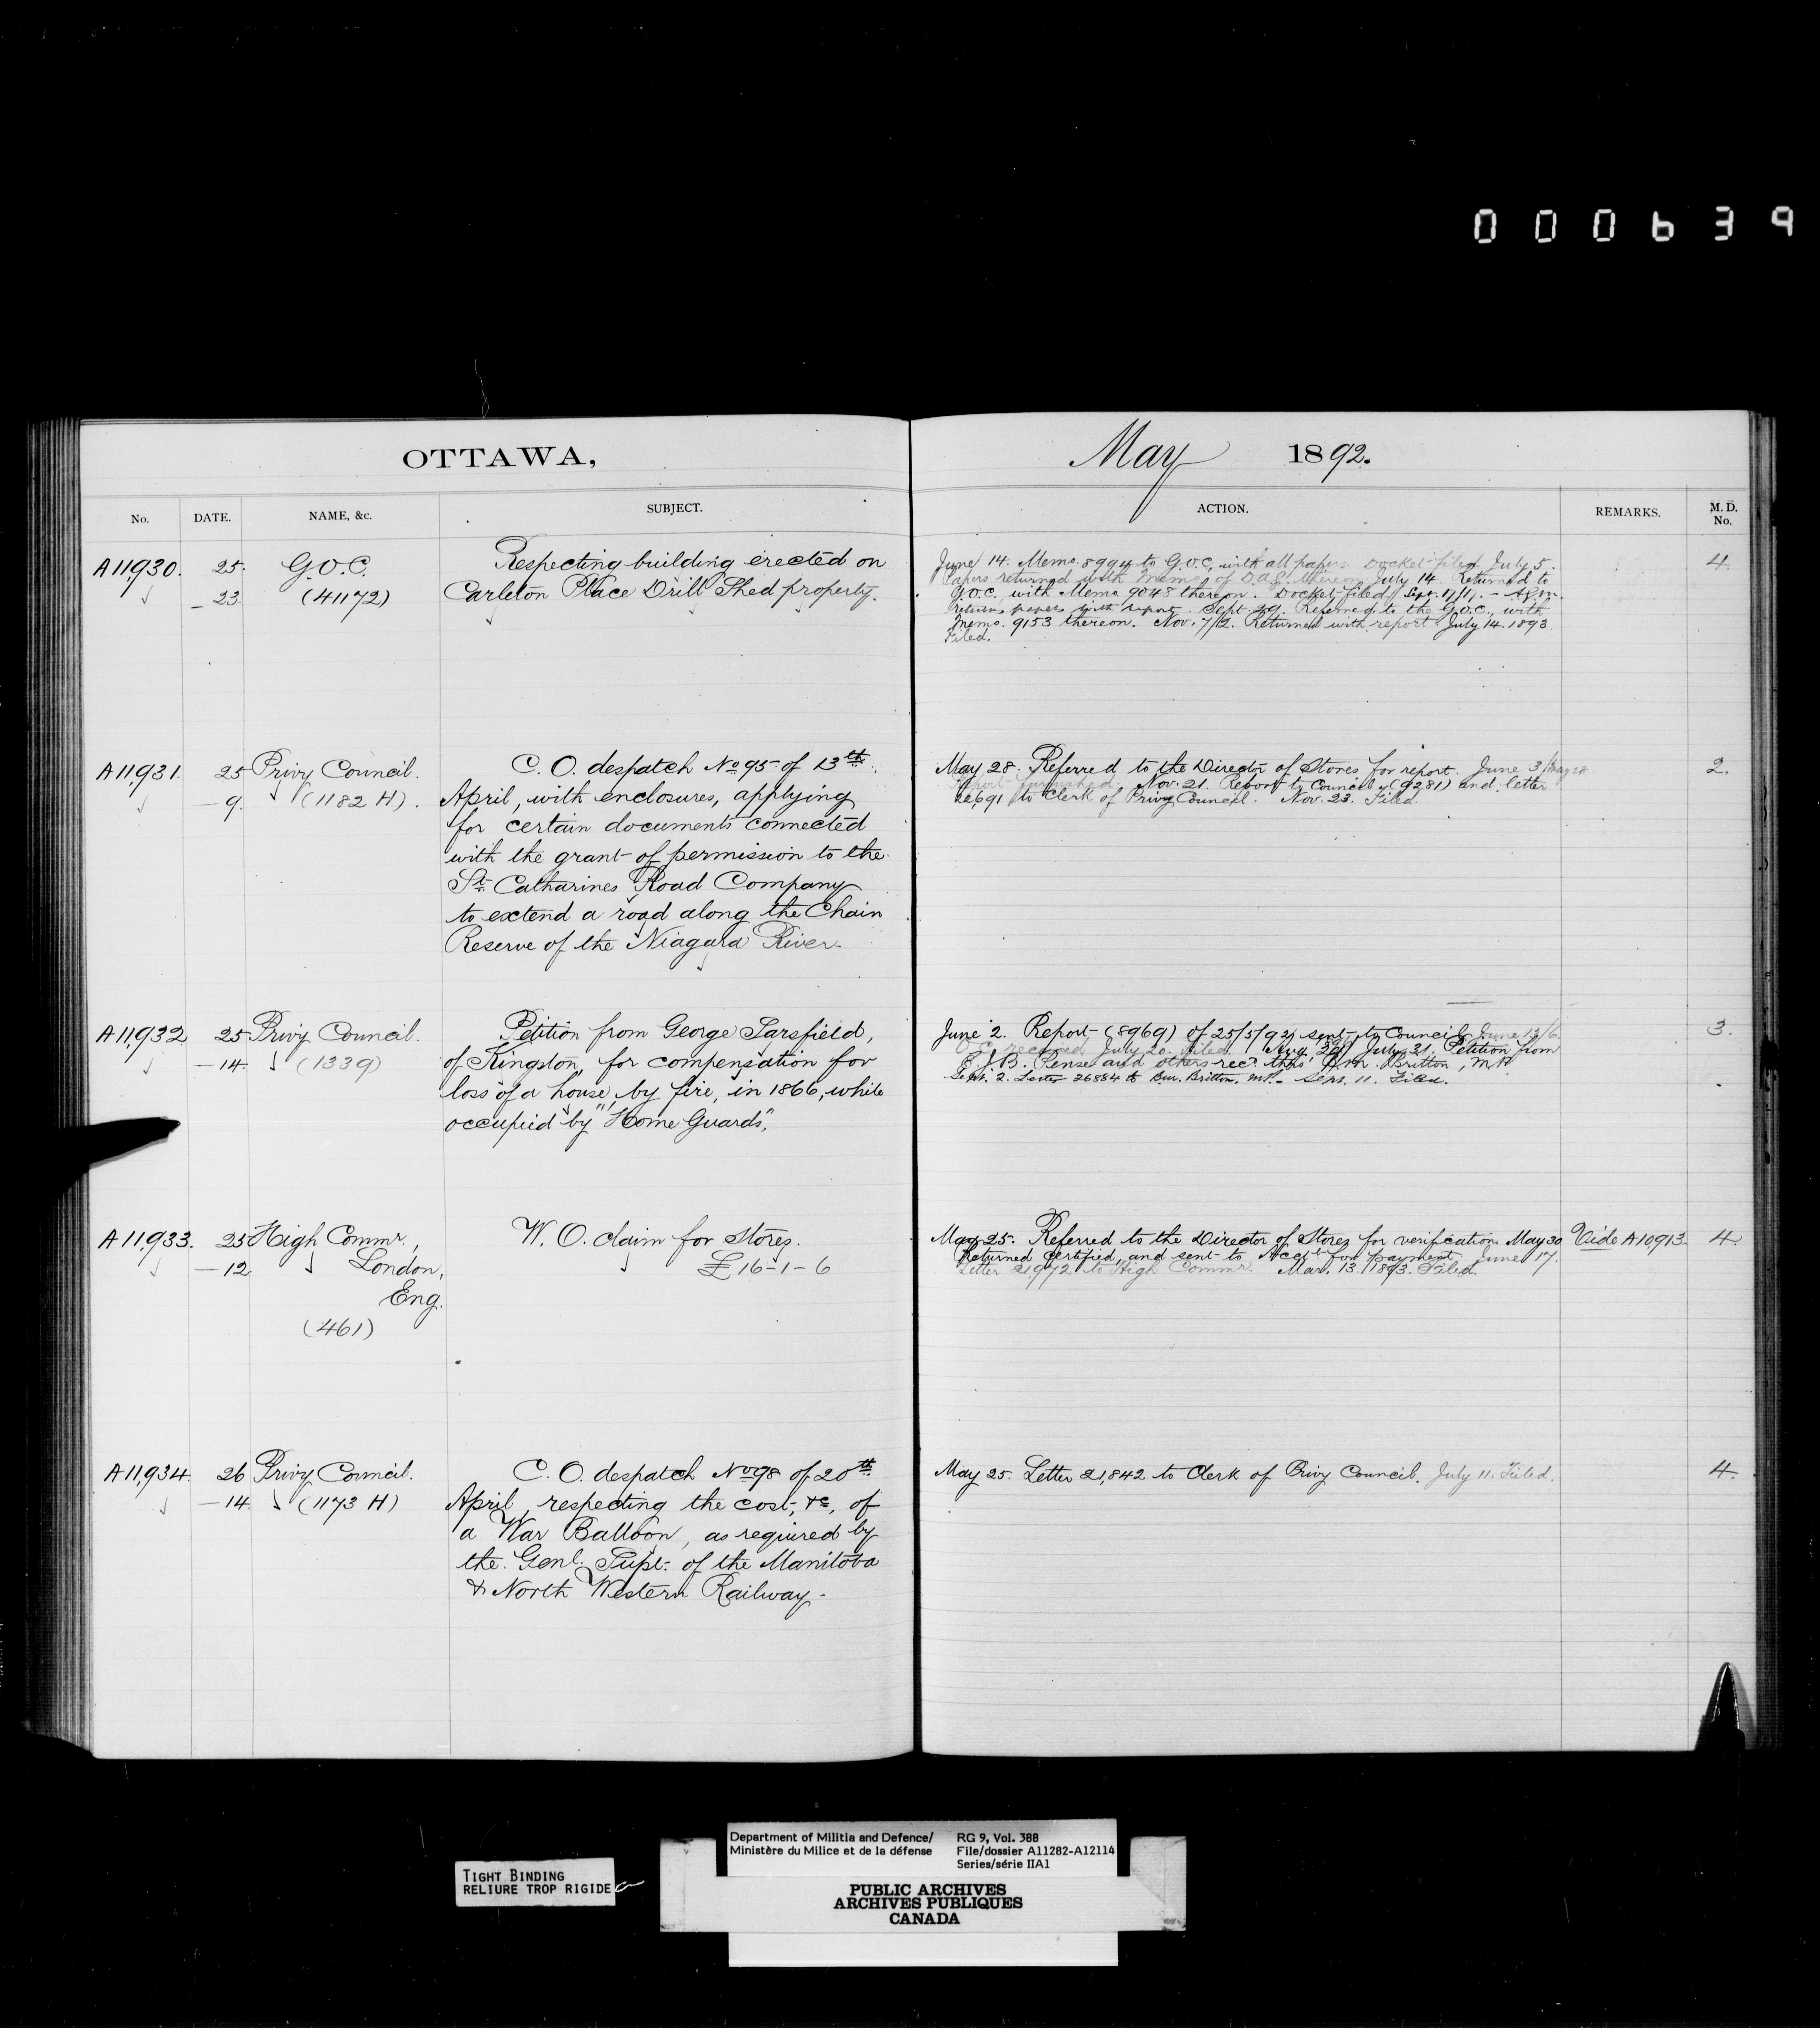 000639
OTTAWA,
May 1892.
No. DATE. NAME, &c. SUBJECT. ACTION. REMARKS. M. D. No.
A11,930. 25. G.O.C. Respecting building erected on
23. (41172) Carleton Place Drill Shed property.
June 14. Memo. 8994 to G.O.C. with all papers. Docket filed. July 5. 4.
Papers returned with memo of D.A.G. thereon. July 14. Returned to
G.O.C. with Memo. 9048 thereon. Docket filed.
return papers with report. Sept. 29. Referred to the G.O.C., with
Memo. 9153 thereon. Nov. 7/2. Returned with report July 14. 1893
Filed.
A11,931. 25 Privy Council. C. O. despatch No 95 of 13th
9. (1182 H). April, with enclosures, applying
for certain documents connected
with the grant of permission to the
St. Catharines Road Company
to extend a road along the Chain
Reserve of the Niagara River
May 28. Referred to the Director of Stores for report. June 3/ 2.
Nov. 21. Report to Council (9281) and letter
22,691 to Clerk of Privy Council. Nov. 23. Filed.
A11,932 25 Privy Council. Petition from George Sarsfield,
14. (1339) of Kingston, for compensation for
loss of a house, by fire, in 1866, while
occupied by "Home Guards",
June 2. Report (8969) of 25/5/92, sent to Council. June 13/6. 3.
O.C. received July 20. Filed. July 31. Petition from
E. J. B. Pense and others rec'd thro' Britton, M.P.
Sept. 2. Letter 26884 to Britton, M.P. Sept. 11. Filed.
A11,933. 25 High Commr., W. O. claim for Stores.
12. London, £16-1-6
Eng.
(461)
May 25. Referred to the Director of Stores for verification. May 30 Vide A10913. 4
Returned certified, and sent to Acct. for payment. June 17.
Letter 21,972 to High Commr. Mar. 13. 1893. Filed.
A11,934. 26 Privy Council. C. O. despatch No 98 of 20th
14. (1173 H) April, respecting the cost, &c, of
a War Balloon, as required by
the Genl. Supt. of the Manitoba
& North Western Railway.
May 25. Letter 21,842 to Clerk of Privy Council. July 11. Filed. 4.
TIGHT BINDING
RELIURE TROP RIGIDE
Department of Militia and Defence/ RG 9, Vol. 388
Ministère du Milice et de la défense File/dossier A11282-A12114
Series/série IIA1
PUBLIC ARCHIVES
ARCHIVES PUBLIQUES
CANADA